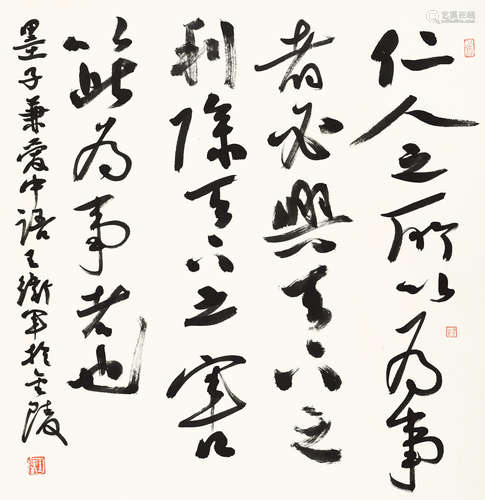 仁人之所以为事
者必興天下之
利除天下之害
以此为事者也
墨子兼愛中語王衛军於金陵